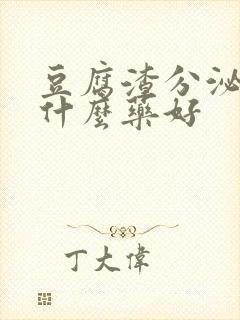 豆腐渣分泌
什麼藥好
丁大偉